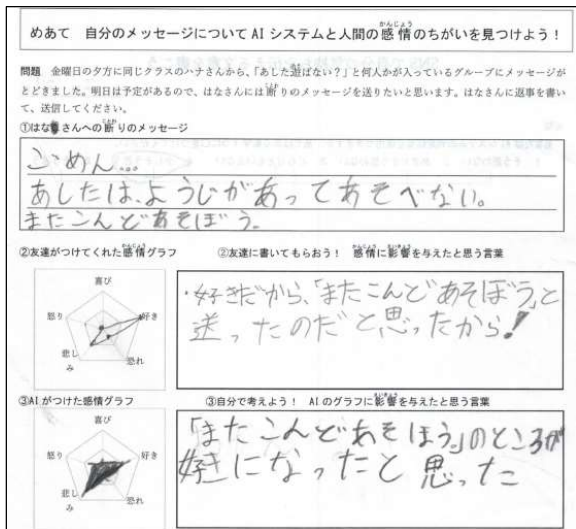 めあて 自分のメッセージについて AI システムと人間の感情のちがいを見つけよう！
問題 金曜日の夕方に同じクラスのハナさんから、「あした遊ばない？」と何人かが入っているグループにメッセージが
とどきました。明日は予定があるので、はなさんには断りのメッセージを送りたいと思います。はなさんに返事を書い
て、送信してください。
①はなさんへの断りのメッセージ
ごめん…
あしたは、ようじがあってあそべない。
またこんどあそぼう。
②友達がつけてくれた感情グラフ
②友達に書いてもらおう！ 感情に影響を与えたと思う言葉
喜び
怒り
好き
悲しみ
恐れ
・好きだから、「またこんどあそぼう」と
送ったのだと思ったから！
③AI がつけた感情グラフ
③自分で考えよう！ AI のグラフに影響を与えたと思う言葉
喜び
怒り
好き
悲しみ
恐れ
「またこんどあそほう」のところが
好きになったと思った